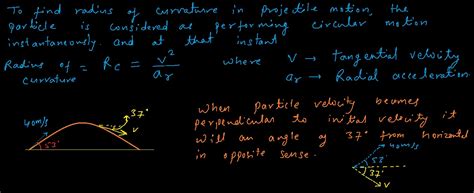 To find radius of curvature in projectile motion, the
particle is considered as performing circular motion
instantaneously. and at that instant
Radius of curvature = Rc = v²/ar where v → Tangential velocity
ar → Radial acceleration
40m/s
53°
37°
v
When Particle velocity becomes
perpendicular to initial velocity it
will an angle of 37° from horizontal
in opposite sense.
40m/s
53°
37°
v